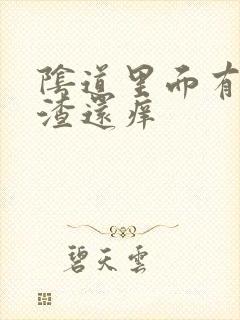 陰道里而有
渣還痒
碧天雲